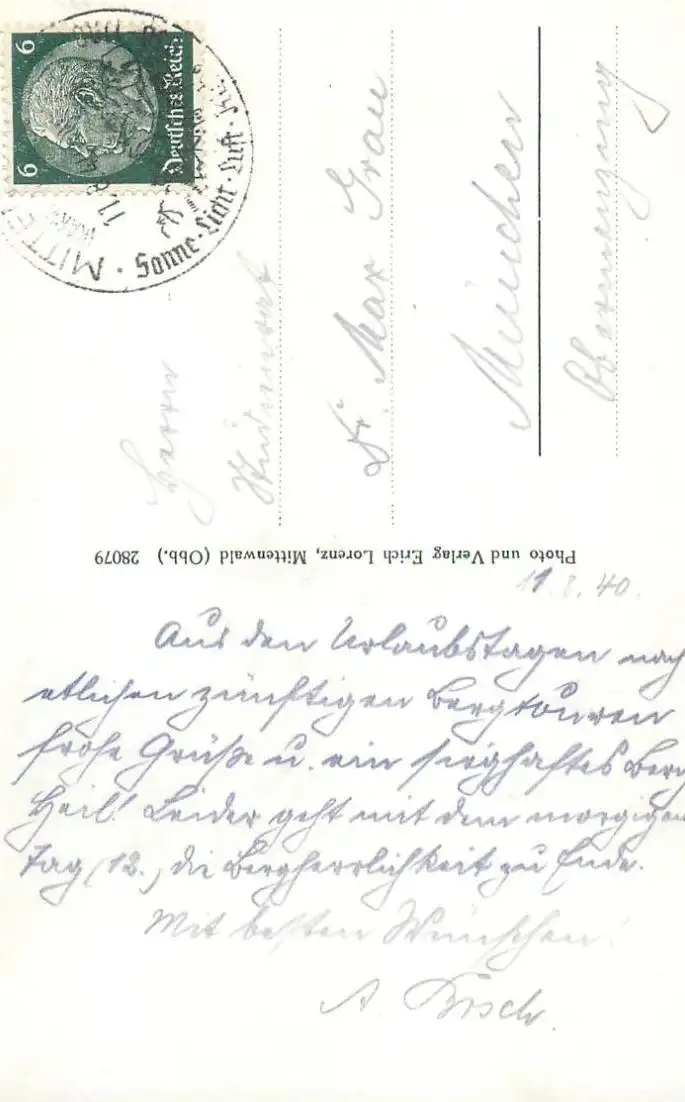 6 6
Deutsches Reich
MITTE
Sonne · Licht · Luft
Herrn
Studienrat
Dr. Max Grau
München
Obermenzing
Photo und Verlag Erich Lorenz, Mittenwald (Obb.) 28079
11.8.40.
Aus den Urlaubstagen nach
etlichen zünftigen Bergtouren
frohe Grüße u. ein sieghaftes Berg
Heil! Leider geht mit dem morgigen
Tag (12.) die Bergherrlichkeit zu Ende.
Mit besten Wünschen!
A.